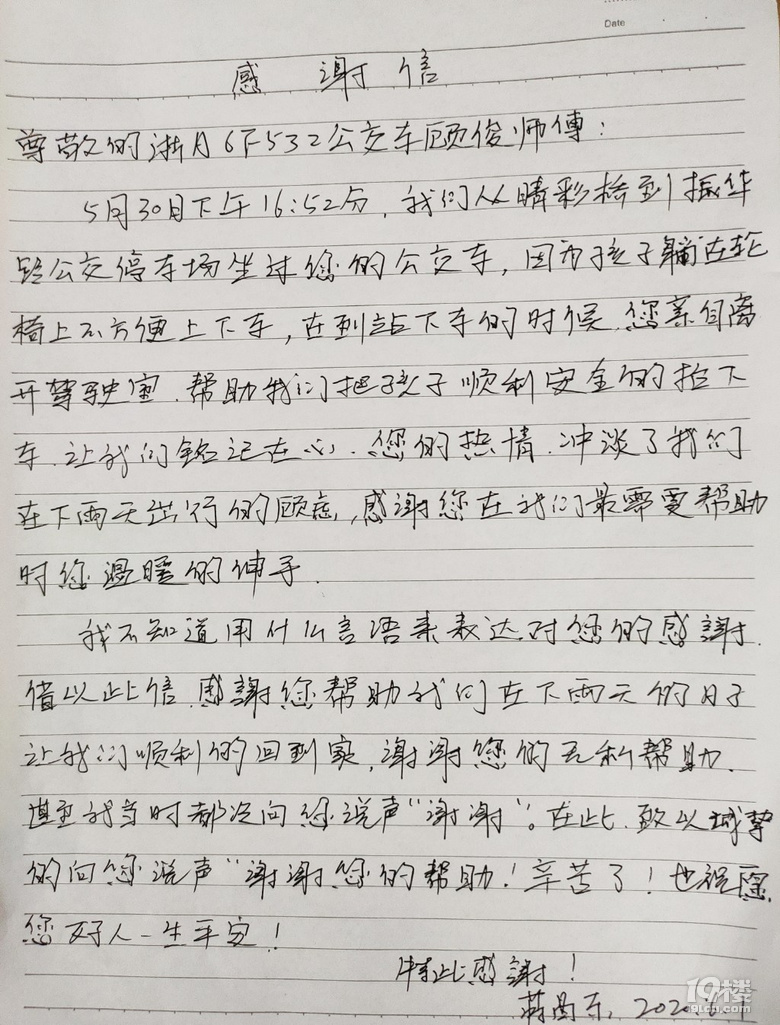 Date
感 謝 信
尊敬的浙A6F532公交车顾俊师傅:
5月30日下午16:52分,我们从晴彩桥到振华
路公交停车场坐过您的公交车,因为孩子躺在轮
椅上不方便上下车,在到站下车的时候.您亲自离
开驾驶室.帮助我们把孩子顺利安全的抬下
车.让我们铭记在心.您的热情.冲淡了我们
在下雨天出行的顾虑,感谢您在我们最需要帮助
时您温暖的伸手.
我不知道用什么言语来表达对您的感謝.
借以此信.感謝您帮助我们在下雨天的日子
让我们顺利的回到家,谢谢您的无私帮助.
甚至我当时都没向您说声“谢谢”。在此.致以诚挚
的向您说声“谢谢您的帮助!辛苦了!也祝愿
您好人一生平安!
特此感謝!
2020
19楼
19lou.com